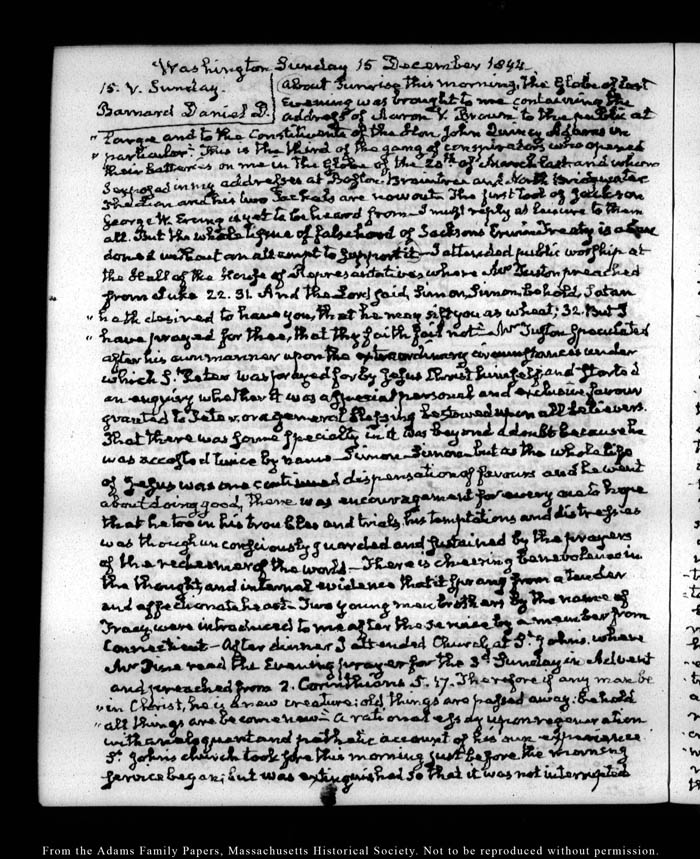 Washington Sunday 15 December 1844.
15. V. Sunday.
Barnard Daniel D.
About Sunrise this morning, the Globe of last
Evening was brought to me containing the
address of Aaron V. Brown to the public at
"large and to the Constituents of the Hon. John Quincy Adams in
"particular." This is the third of the gang of conspirators who opened
their batteries on me in the Globe of the 20th of March last and whom
I exposed in my addresses at Boston, Braintree and North Bridgwater
The Lion and his two Jackals are now out. The first tool of Jackson
George W. Erving is yet to be heard from. I must reply at leisure to them
all. But the whole tissue of falsehood of Jackson's Erving Treaty is aban
doned without an attempt to support it—I attended public worship at
the Hall of the House of Representatives where Mr Tuston preached
from Luke 22. 31. And the Lord said, Simon, Simon, behold, Satan
"hath desired to have you, that he may sift you as wheat; 32. But I
"have prayed for thee, that thy faith fail not—Mr Tuston speculated
after his own manner upon the extraordinary circumstances under
which St. Peter was prayed for by Jesus Christ himself, and started
an enquiry whether it was a special personal and exclusive favour
granted to Peter, or a general blessing bestowed upon all believers.
That there was some specialty in it was beyond a doubt because he
was accosted twice by name Simon—Simon—but as the whole life
of Jesus was one continued dispensation of favours and he went
about doing good, there was encouragement for every one to hope
that he too in his troubles and trials, his temptations and distresses
was though unconsciously guarded and sustained by the prayers
of the redeemer of the world—There is cheering benevolence in
the thought, and internal evidence that it sprang from a tender
and affectionate heart—Two young men brothers by the name of
Tracy were introduced to me after the service by a member from
Connecticut—After dinner I attended Church at St. Johns, where
Mr Pine read the Evening prayer for the 3d Sunday in Advent
and preached from 2. Corinthians 5. 17. Therefore if any man be
"in Christ, he is a new creature: old things are passed away: behold
"all things are become new—A rational essay upon regeneration
with an eloquent and pathetic account of his own experience
St. Johns church took fire this morning just before the morning
service began; but was extinguished so that it was not interrupted
From the Adams Family Papers, Massachusetts Historical Society. Not to be reproduced without permission.